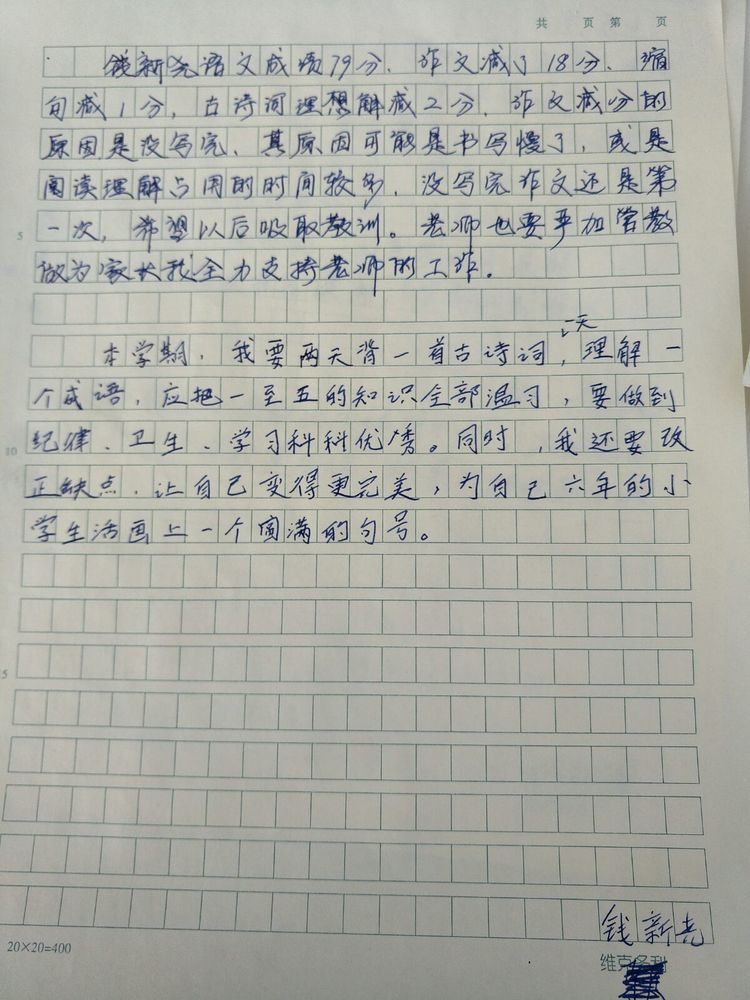 共 页 第 页
钱新尧语文成绩79分、作文减了18分、缩
句减1分,古诗词理想解减2分、作文减分的
原因是没写完、其原因可能是书写慢了,或是
阅读理解占用的时间较多,没写完作文还是第
5 一次,希望以后吸取教训。老师也要严加管教
做为家长我全力支持老师的工作。
一天
本学期,我要两天背一首古诗词,理解一
个成语,应把一至五的知识全部温习,要做到
10 纪律、卫生、学习科科优秀。同时,我还要改
正缺点,让自己变得更完美,为自己六年的小
学生活画上一个圆满的句号。
钱新尧
20×20=400
维克